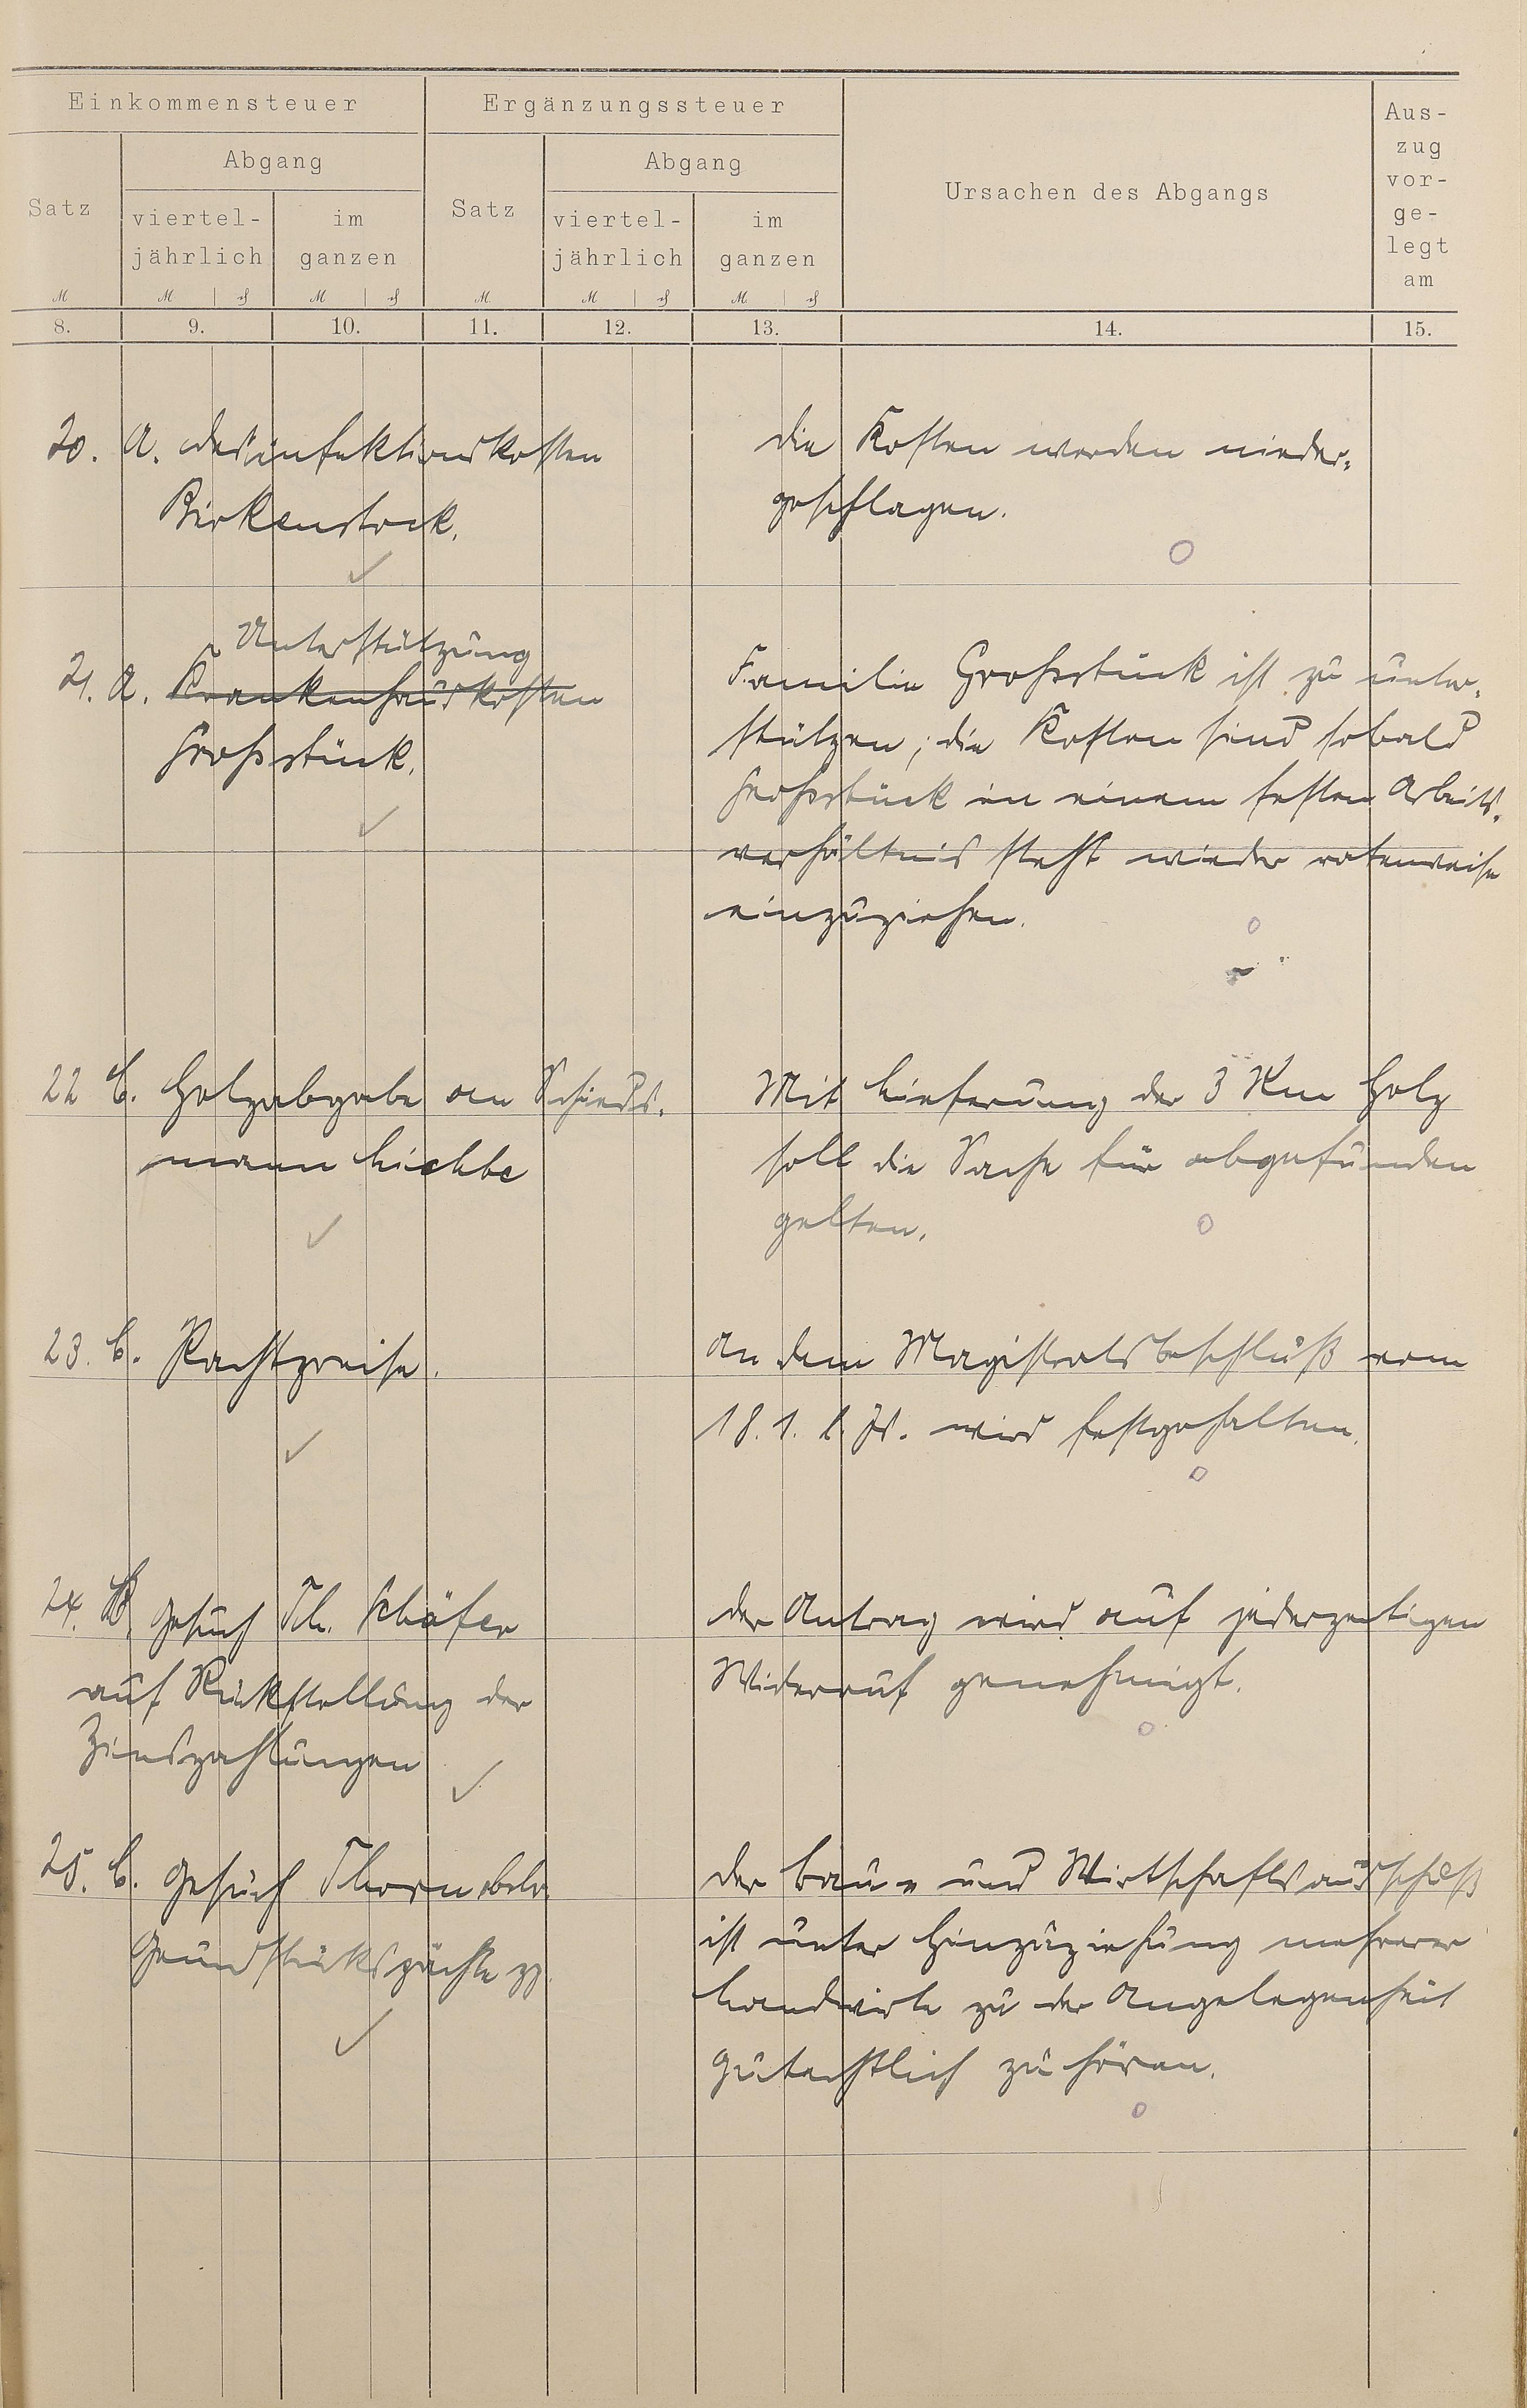 Einkommensteuer
Ergänzungssteuer
Satz
Abgang
viertel-
jährlich
im
ganzen
Satz
Abgang
viertel-
jährlich
im
ganzen
Ursachen des Abgangs
Aus-
zug
vor-
ge-
legt
am
M
M
M
M
M
M
8. 9. 10. 11. 12. 13. 14. 15.
20. A. Desinfektionskosten
Birkenstock.
Die Kosten werden nieder-
geschlagen.
Unterstützung
21. A. Krankenhauskosten
Großstück.
Familie Großstück ist zu unter-
stützen; die Kosten sind sobald
Großstück in einem festen Arbeits-
verhältnis steht wieder ratenweise
einzuziehen.
22 C. Holzabgabe an Schieds-
mann Liekbe
Mit Lieferung der 3 Rm Holz
soll die Sache für abgefunden
gelten.
23. C. Pachtpreise.
An dem Magistratsbeschluß vom
18. 1. l. Js. wird festgehalten.
24. B. Gesuch Th. Schäfer
auf Rückstellung der
Zinszahlungen
Der Antrag wird auf jederzeitigen
Widerruf genehmigt.
25. C. Gesuch Thorn betr.
Grundstückspächte pp.
Der Bau- und Wirtschaftsausschuß
ist unter Hinzuziehung mehrerer
Landwirte zu der Angelegenheit
gutachtlich zu hören.